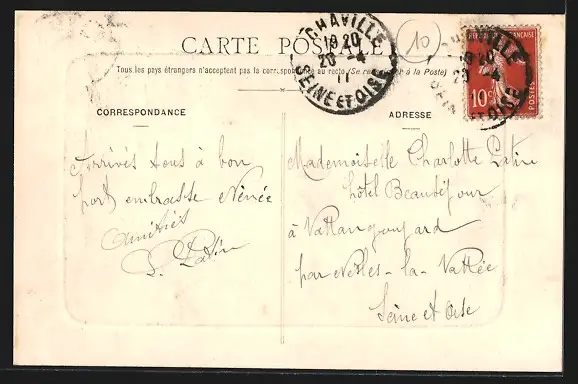 CARTE POSTALE
Tous les pays étrangers n'acceptent pas la correspondance au recto (Se renseigner à la Poste)
CHAVILLE
19 20
20 -4
11
SEINE ET OISE
10
RÉPUBLIQUE FRANÇAISE
10c
POSTES
CORRESPONDANCE
Arrivés tous à bon
port embrasse Nénée
Amitiés
ADRESSE
Mademoiselle Charlotte Patin
hôtel Beauséjour
à Vallangoujard
par Nesles-la-Vallée
Seine et Oise